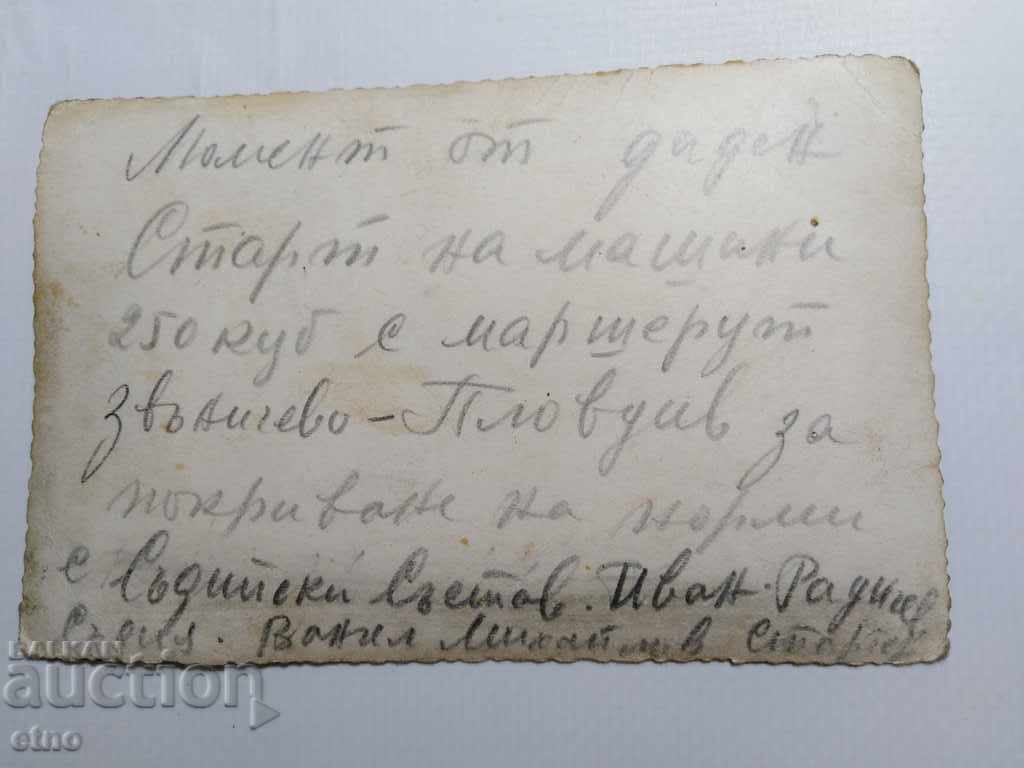 Момент от даден
Старт на машини
250 куб с маршерут
Звъничево - Пловдив за
покриване на норми
с Съдийски Състав. Иван. Радичев
Съдия. Вангел Михайлов Стартер
BALKAN
auction
etno